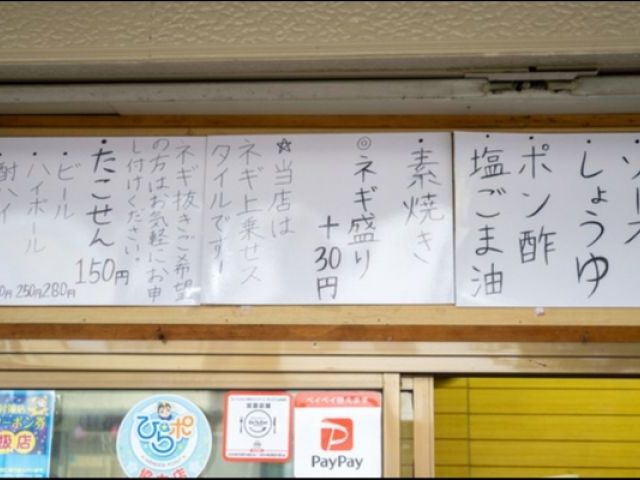 ・ソース
・しょうゆ
・ポン酢
・塩ごま油
・素焼き
◎ネギ盛り
＋30円
☆当店は
ネギ上乗せス
タイルです!
ネギ抜きご希望
の方はお気軽にお申
し付けください。
・たこせん
150円
・ビール
280円
・ハイボール
250円
酎ハイ
ひらポ
協力店
ペイペイ
PayPay
ーポン券
扱店